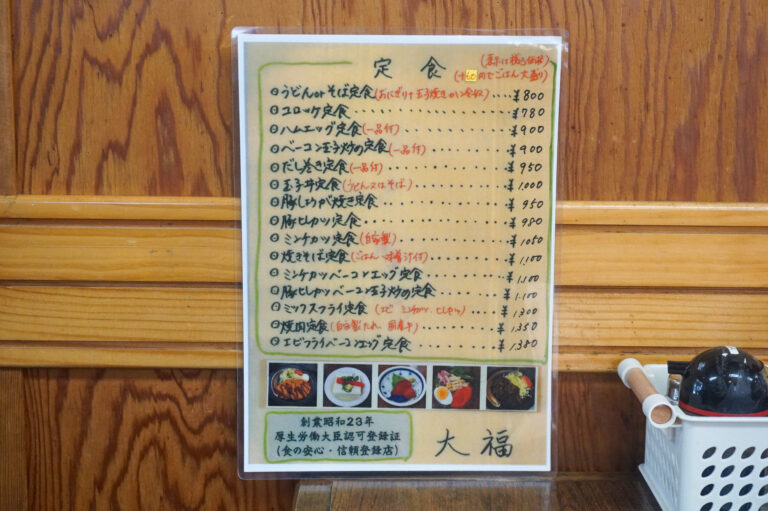 定食
(表示は税込価格)
(+60円でごはん大盛り)
うどんorそば定食(おにぎり+玉子焼き ¥800
コロッケ定食 ¥780
ハムエッグ定食(一品付) ¥900
ベーコン玉子炒め定食(一品付) ¥900
だし巻き定食(一品付) ¥950
玉子丼定食(うどん又はそば) ¥1,000
豚しょうが焼き定食 ¥950
豚ヒレカツ定食 ¥980
ミンチカツ定食(自家製) ¥1050
焼きそば定食(ごはん・味噌汁付) ¥1,100
ミンチカツベーコンエッグ定食 ¥1,100
豚ヒレカツベーコン玉子炒め定食 ¥1,100
ミックスフライ定食(エビ ミンチカツ、ヒレカツ) ¥1300
焼肉定食(自家製たれ、国産牛) ¥1,350
エビフライベーコンエッグ定食 ¥1,380
創業昭和23年
厚生労働大臣認可登録証
(食の安心・信頼登録店)
大福